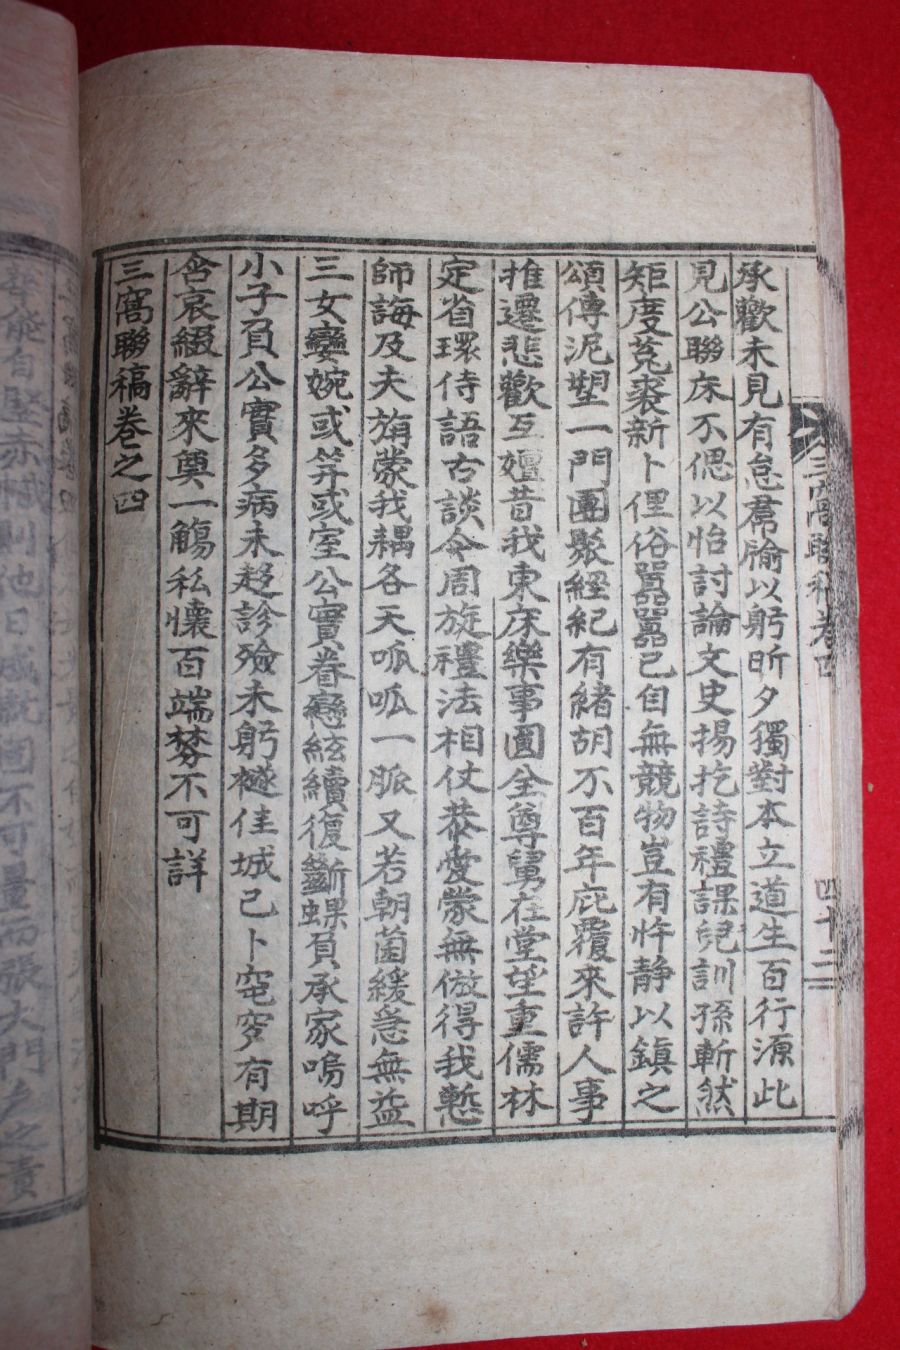 承歡未見有怠鴌腧以躬昕夕獨對本立道生百行源此
見公聯床不偲以怡討論文史揚扢詩禮課兒訓孫斬然
矩度菟裘新卜俚俗囂囂己自無競物豈有忤靜以鎭之
頌傳泥塑一門團聚經紀有緖胡不百年庇覆來許人事
推遷悲歡互嬗昔我東床樂事圓全尊舅在堂望重儒林
定省環侍語古談今周旋禮法相仗恭愛蒙無倣得我慙
師誨及夫旃蒙我耦各天呱呱一脈又若朝菌緩急無益
三女孌婉或笄或室公實眷戀絃續復斷螟負承家嗚呼
小子負公實多病未趍診殮未躬襚佳城已卜窀穸有期
含哀綴辭來奠一觴私懷百端棼不可詳
三窩聯稿卷之四
三窩聯稿卷四
四十二